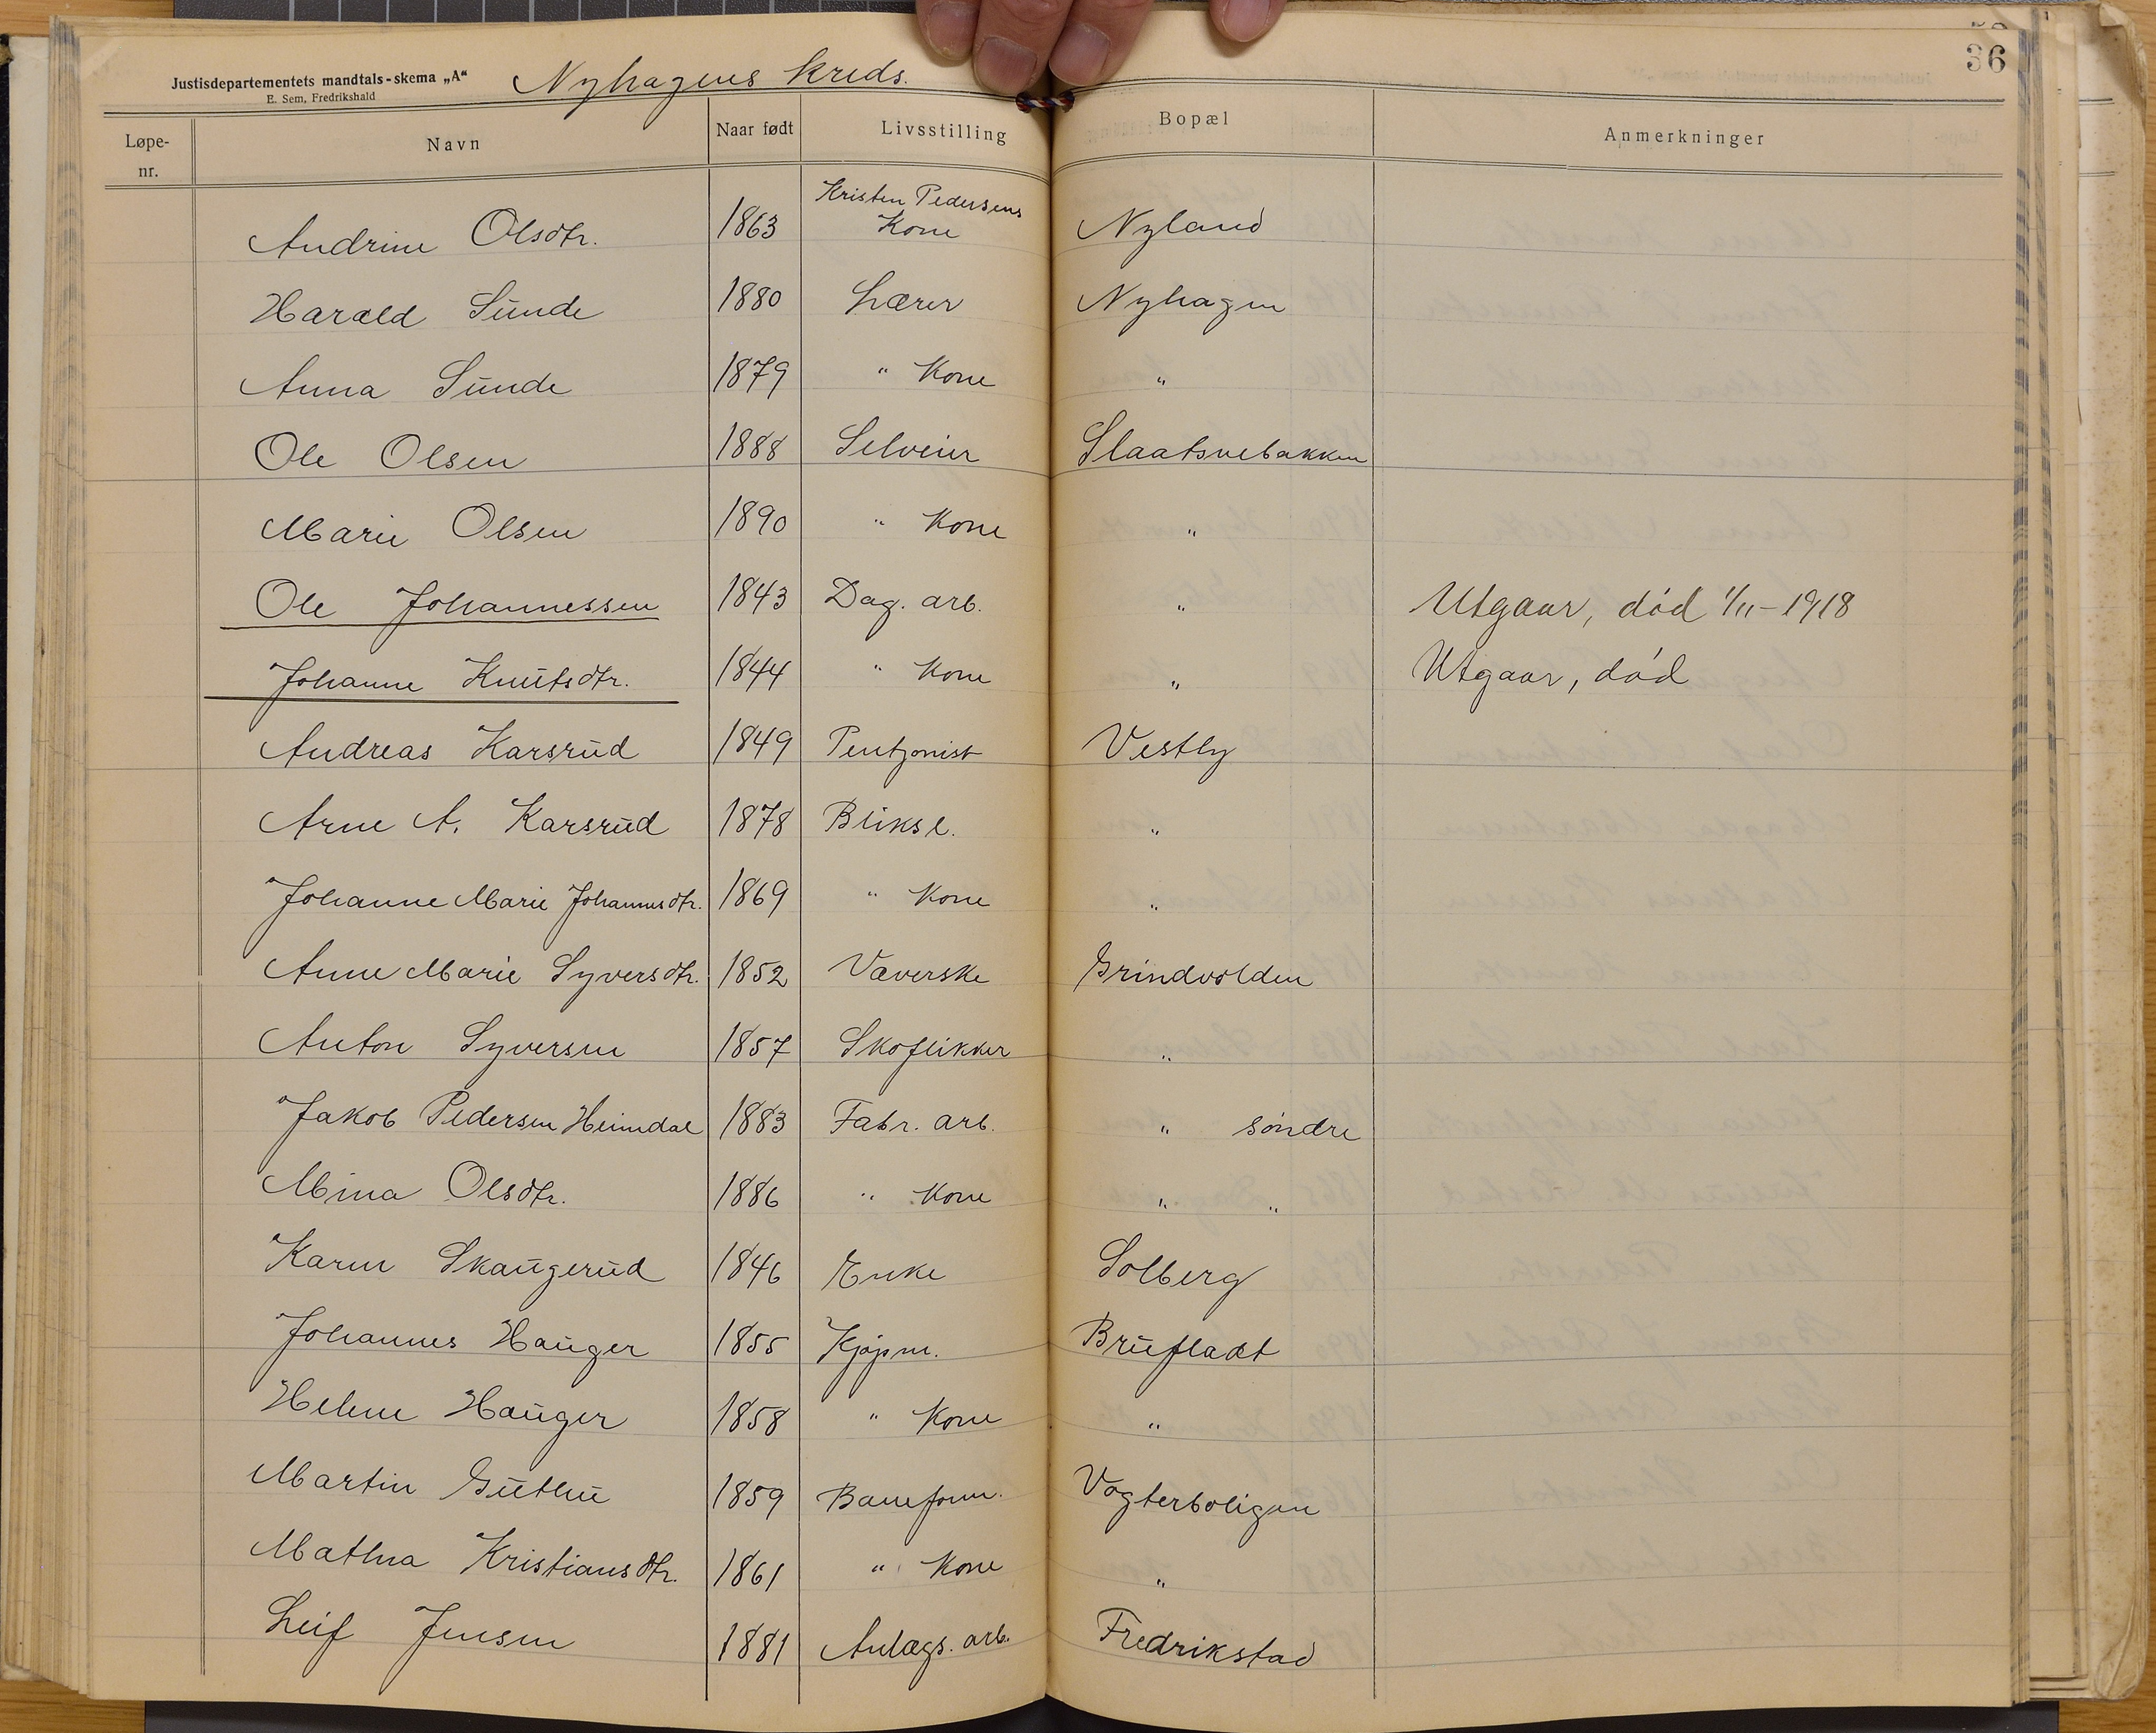 36
Justisdepartementets mandtals-skema „A“ Nyhagens kreds.
E. Sem, Fredrikshald
Løpe-nr. Navn Naar født Livsstilling Bopæl Anmerkninger
Andrine Olsdtr. 1863 Kristen Pedersens Kone Nyland
Harald Sunde 1880 Lærer Nyhagen
Anna Sunde 1879 " Kone "
Ole Olsen 1888 Selveier Slaatsvebakken
Marie Olsen 1890 " Kone "
Ole Johannessen 1843 Dag. arb. " Utgaar, død 1/11-1918
Johanne Knutsdtr. 1844 " Kone " Utgaar, død
Andreas Karsrud 1849 Pentjonist Vestby
Arne A. Karsrud 1878 Bliksl. "
Johanne Marie Johannesdtr. 1869 " Kone "
Anne Marie Syversdtr. 1852 Væverske Grindvolden
Anton Syversen 1857 Skoflikker "
Jakob Pedersen Heimdal 1883 Fabr. arb. " søndre
Mina Olsdtr. 1886 " Kone " "
Karen Skaugerud 1846 Enke Solberg
Johannes Hauger 1855 Kjøpm. Brufladt
Helene Hauger 1858 " Kone "
Martin Guthu 1859 Baneform. Vogterboligen
Mathea Kristiansdtr. 1861 " Kone "
Leif Jensen 1881 Anlægs. arb. Fredrikstad